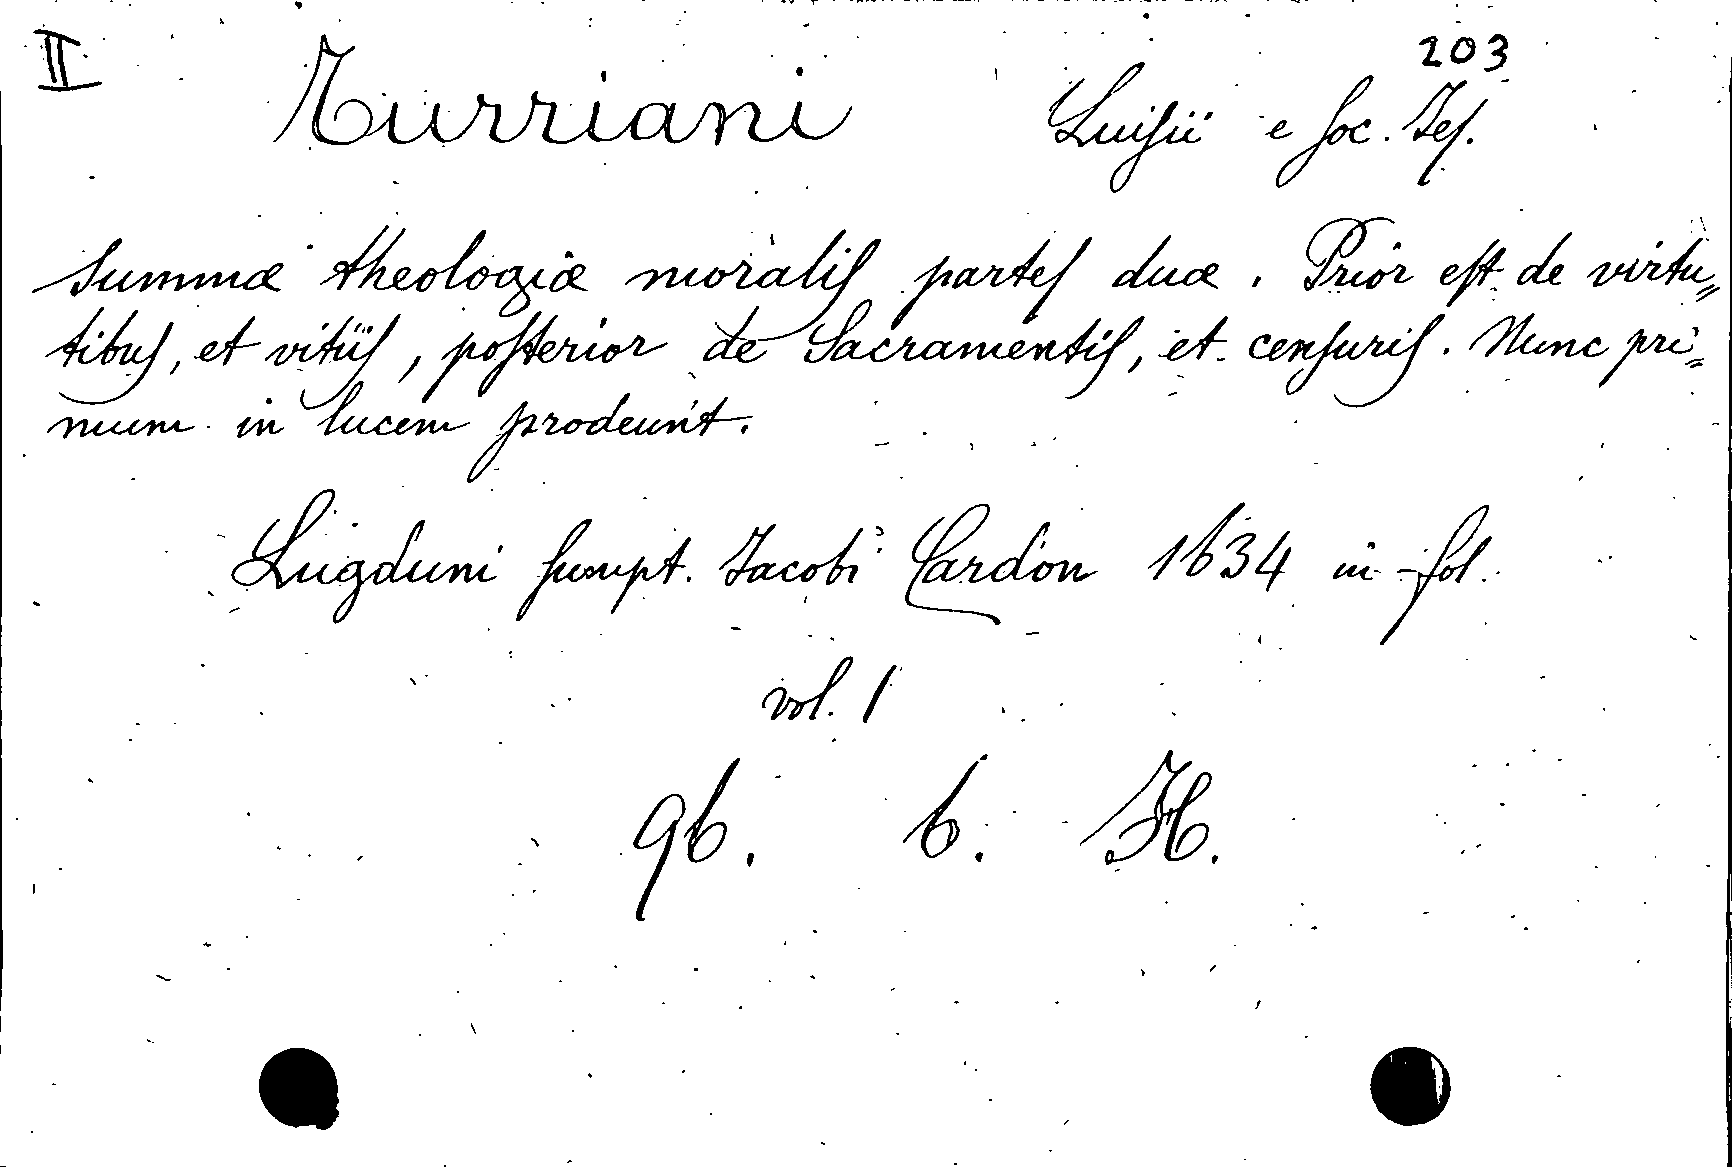 II 203
Turriani Luisii e Soc. Jes.
Summæ theologiæ moralis partes duæ. Prior est de virtu„
tibus, et vitiis, posterior de Sacramentis, et censuris. Nunc pri„
mum in lucem prodeunt.
Lugduni sumpt. Jacobi Cardon 1634 in-fol.
vol. 1
96. 6. H.